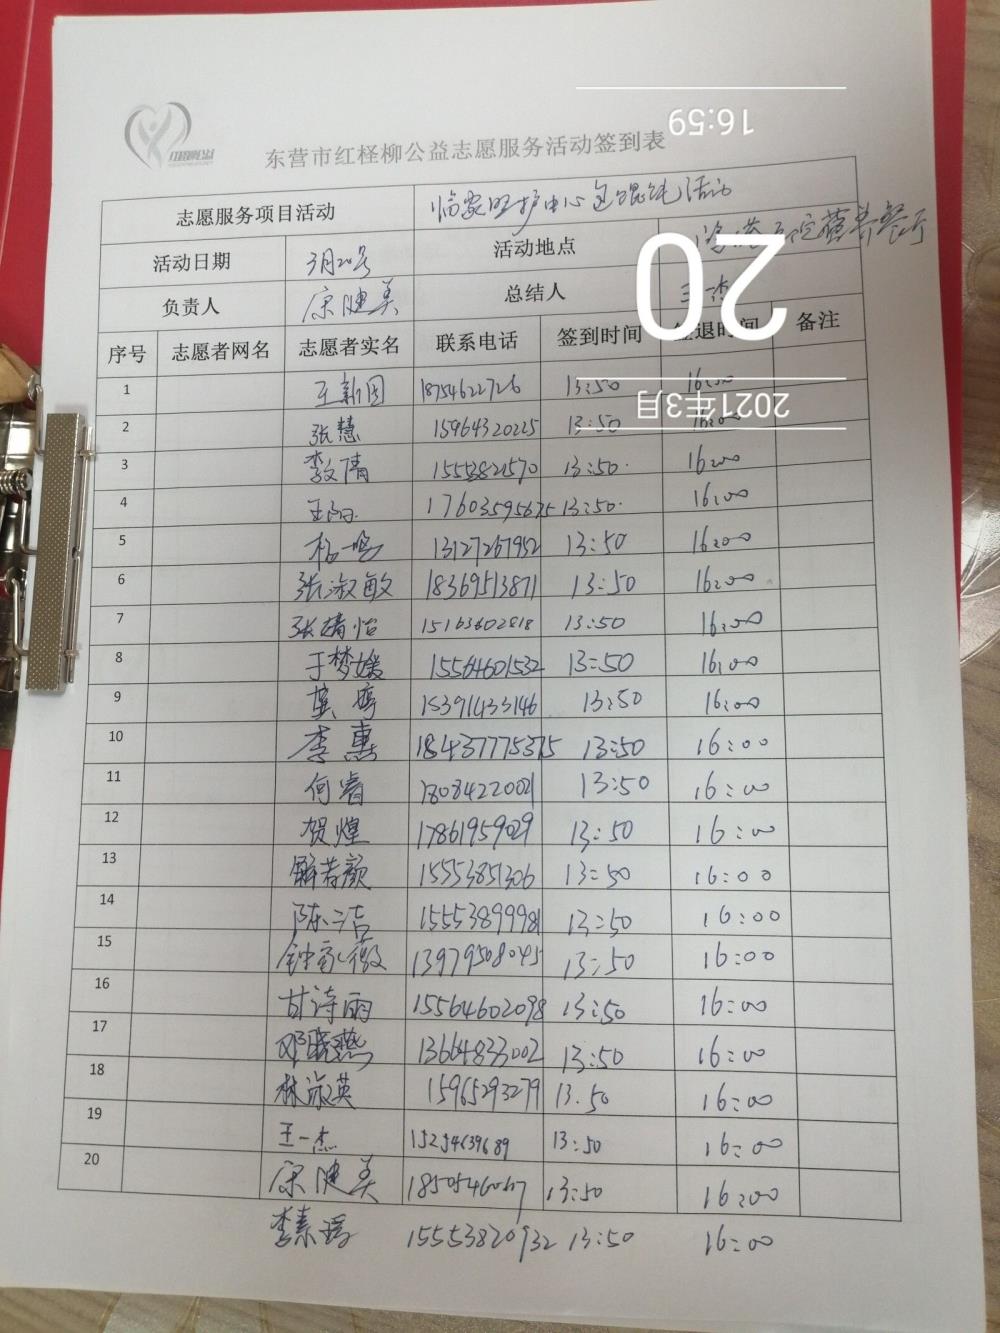 16:59
红柽柳公益
东营市红柽柳公益志愿服务活动签到表
志愿服务项目活动 临家照护中心包馄饨活动
活动日期 3月20号 活动地点 营养餐厅
负责人 康健美 总结人 王一杰
20
序号 志愿者网名 志愿者实名 联系电话 签到时间 签退时间 备注
2021年3月
1 王新国 18754622726 13:50 16:00
2 张慧 15964320225 13:50 16:00
3 李文倩 15553821570 13:50 16:00
4 17603595675 13:50 16:00
5 杨一鸣 13127267952 13:50 16:00
6 张淑敏 18369513871 13:50 16:00
7 张靖怡 15163602818 13:50 16:00
8 于梦媛 15564601532 13:50 16:00
9 15391433146 13:50 16:00
10 李惠 18437775375 13:50 16:00
11 何睿 18084220021 13:50 16:00
12 贺煌 17861959029 13:50 16:00
13 解若颜 15553851306 13:50 16:00
14 陈洁 15553899981 13:50 16:00
15 钟家薇 13979508045 13:50 16:00
16 甘诗雨 15564602098 13:50 16:00
17 邓晓燕 13664833002 13:50 16:00
18 林淑英 15965293279 13.50 16:00
19 王一杰 15254639689 13:50 16:00
20 康健美 13:50 16:00
李素瑶 15553820932 13:50 16:00